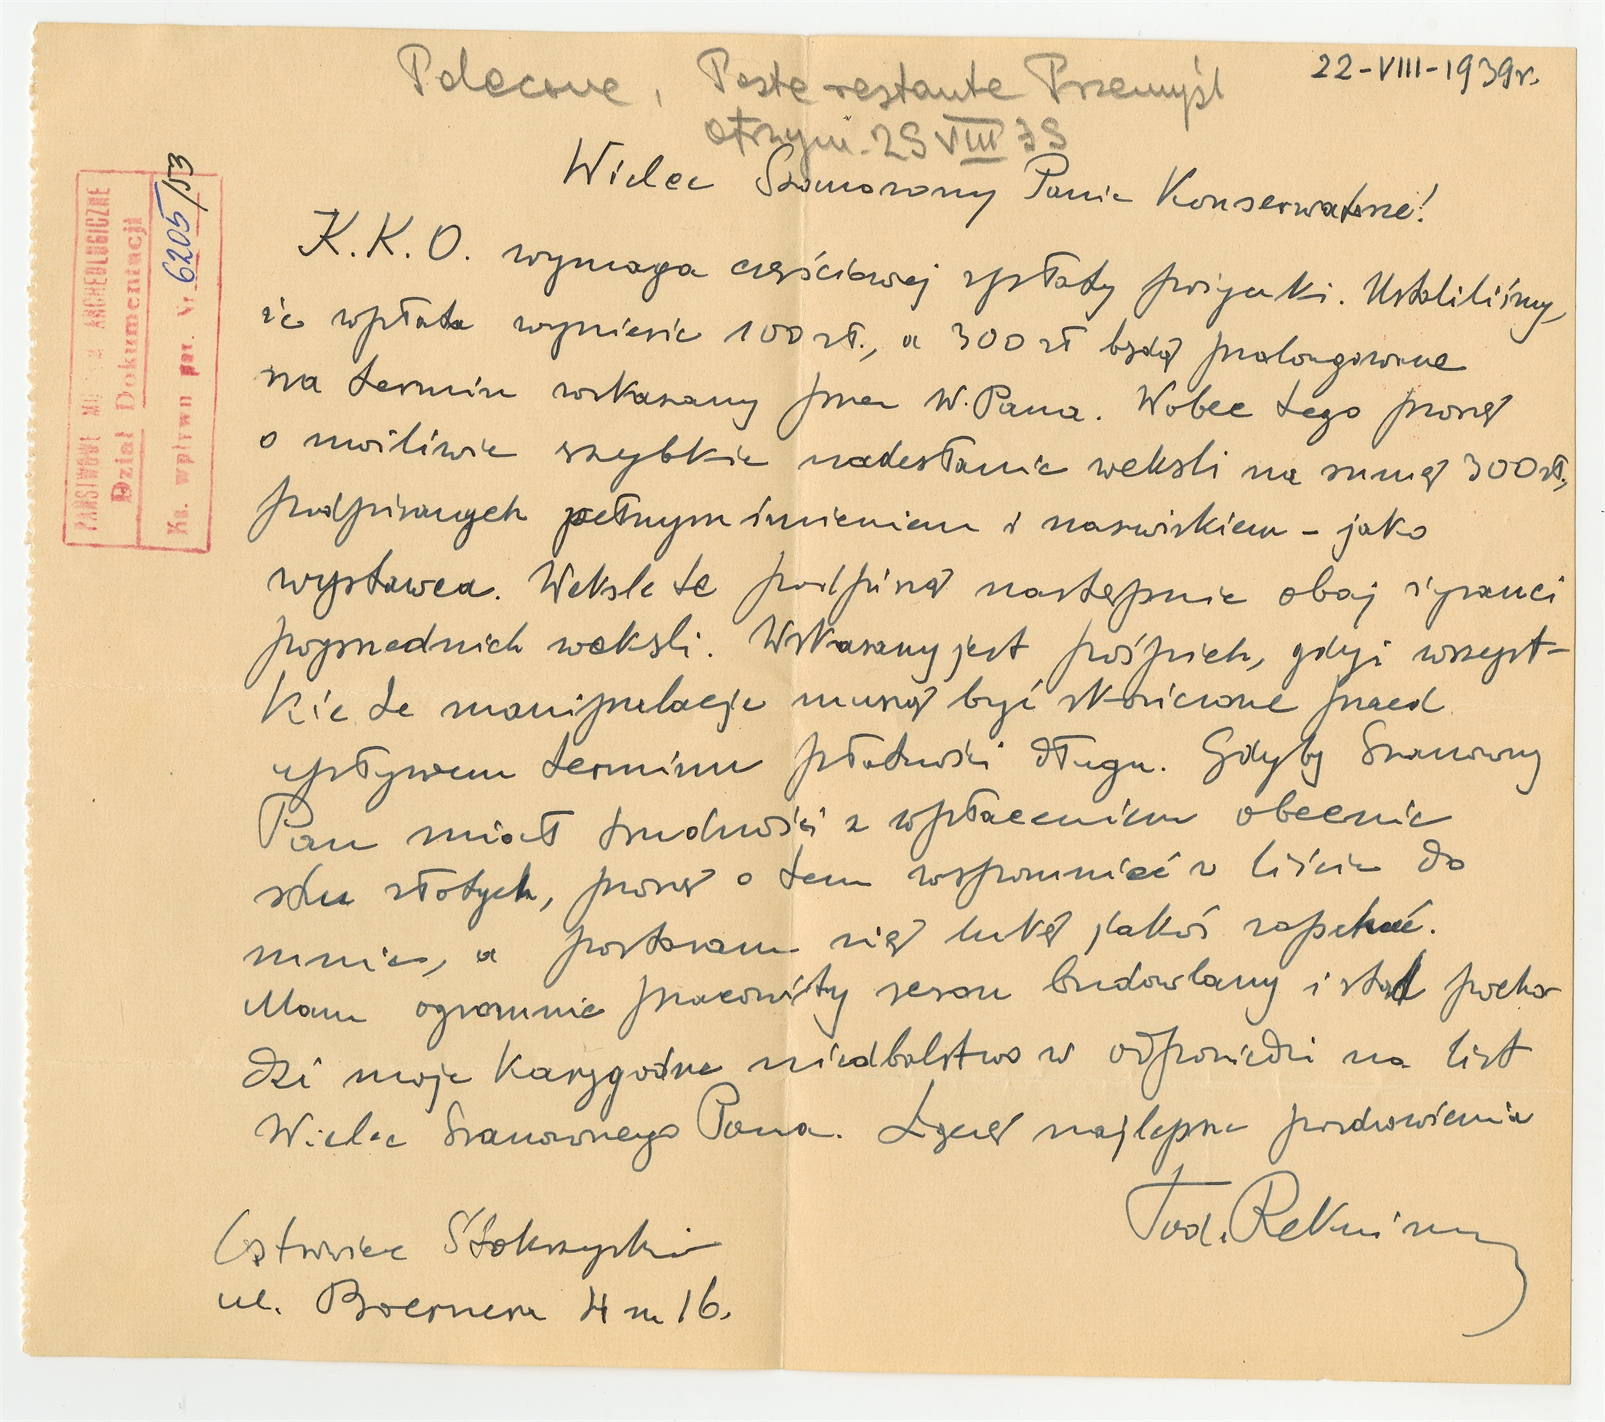 22-VIII-1939r.
Polecone, Poste restante Przemyśl
otrzym. 29 VIII 39
Wielce Szanowny Panie Konserwatorze!
K.K.O. wymaga częściowej spłaty pożyczki. Ustaliliśmy,
że wpłata wyniesie 100 zł., a 300 zł będą prolongowane
na termin wskazany przez W. Pana. Wobec tego proszę
o możliwie szybkie nadesłanie weksli na sumę 300 zł.,
podpisanych pełnym imieniem i nazwiskiem – jako
wystawca. Weksle te podpiszą następnie obaj żyranci
poprzednich weksli. Wskazany jest pośpiech, gdyż wszyst-
kie te manipulacje muszą być skończone przed
upływem terminu płatności długu. Gdyby Szanowny
Pan miał trudności z wpłaceniem obecnie
stu złotych, proszę o tem wspomnieć w liście do
mnie, a postaram się lukę jakoś zapchać.
Mam ogromnie pracowity sezon budowlany i stąd pocho-
dzi moje karygodne niedbalstwo w odpowiedzi na list
Wielce Szanownego Pana. Łączę najlepsze pozdrowienia
Tad. Rekwirowicz
Ostrowiec Świętokrzyski
ul. Boernera 4 m 16.
PAŃSTWOWE MUZEUM ARCHEOLOGICZNE
Dział Dokumentacji
Ks. wpływu par. Nr 6205/53